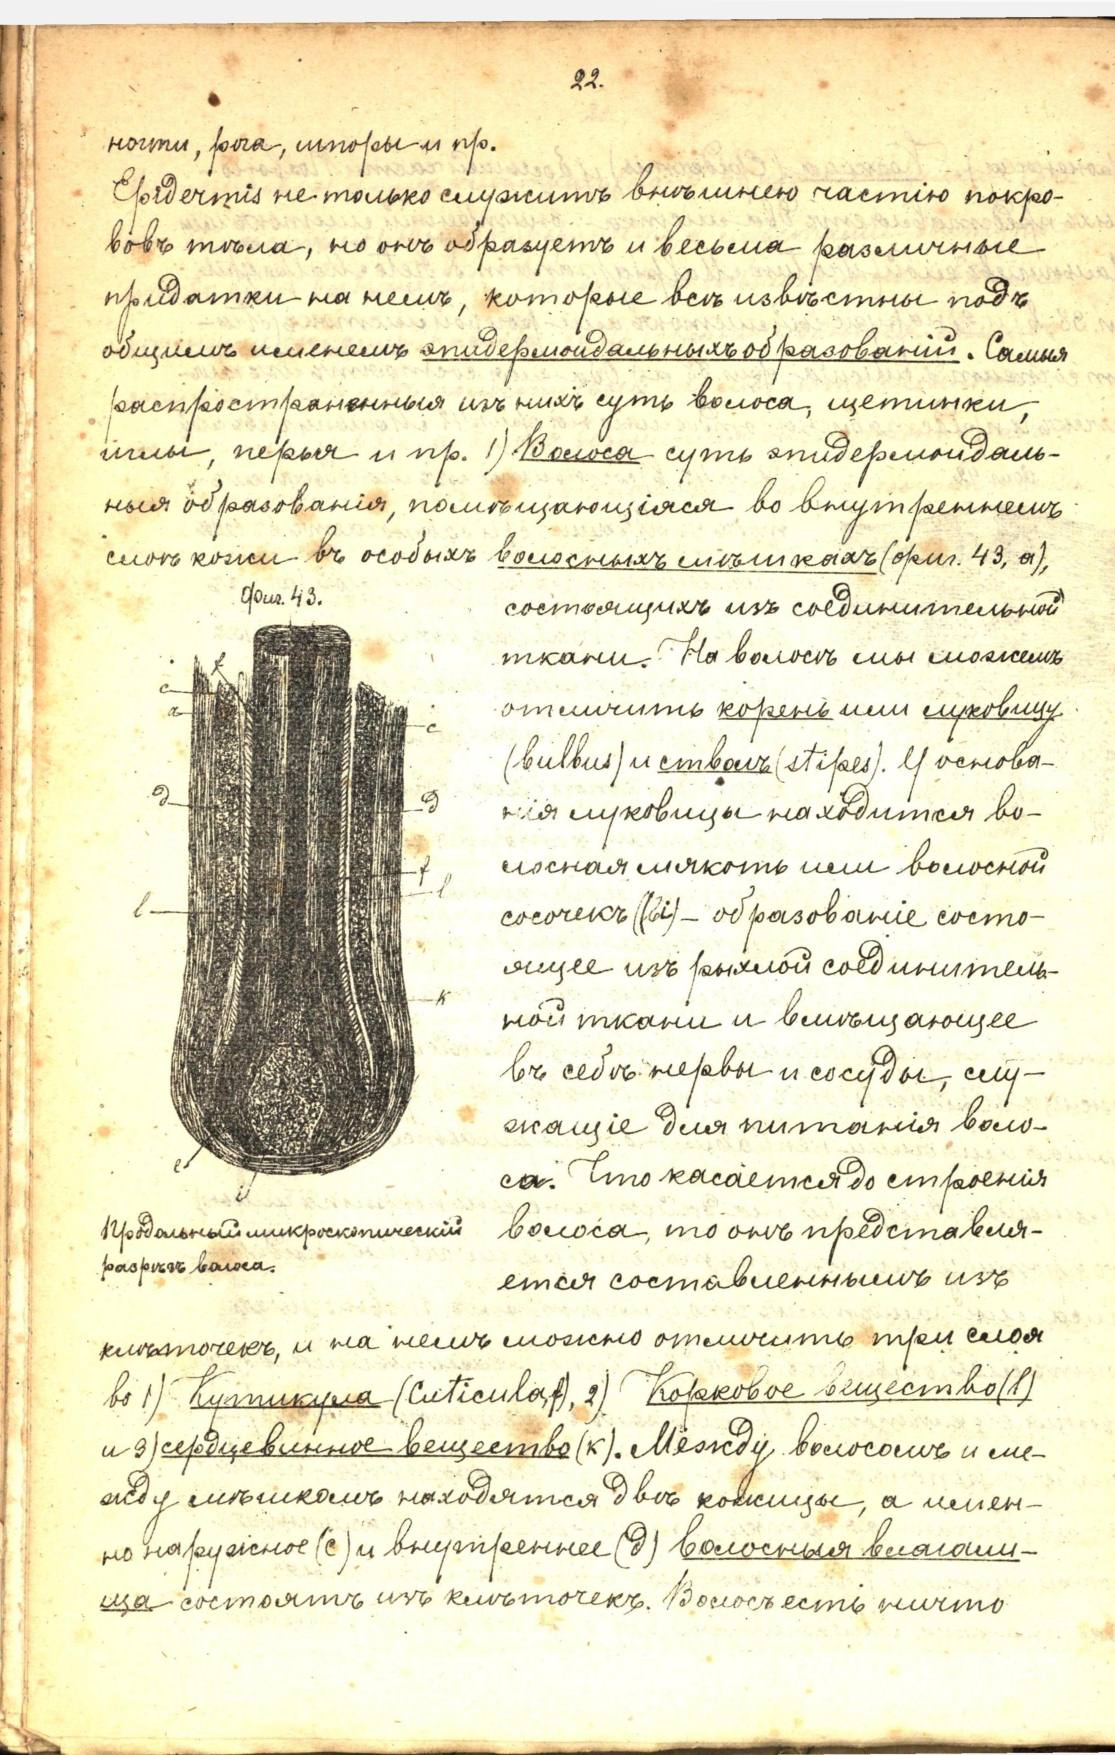 22.
ногти, рога, шпоры и пр.
Epidermis не только служитъ внѣшнею частію покро-
вовъ тѣла, но онъ образуетъ и весьма различные
придатки на немъ, которые всѣ извѣстны подъ
общимъ именемъ эпидермоидальныхъ образованій. Самыя
распространенныя изъ нихъ суть волоса, щетинки,
иглы, перья и пр. 1) Волоса суть эпидермоидаль-
ныя образованія, помѣщающіяся во внутреннемъ
слоѣ кожи въ особыхъ волосныхъ мѣшкахъ (фиг. 43, а),
Фиг. 43.
c
f
a
c
d
d
f
l
l
k
e
i
Продольный микроскопическій
разрѣзъ волоса.
состоящихъ изъ соединительной
ткани. На волосѣ мы можемъ
отличить корень или луковицу
(bulbus) и стволъ (stipes). У основа-
нія луковицы находится во-
лосная мякоть или волосной
сосочекъ – образованіе состо-
ящее изъ рыхлой соединитель-
ной ткани и вмѣщающее
въ себѣ нервы и сосуды, слу-
жащіе для питанія воло-
са. Что касается до строенія
волоса, то онъ представля-
ется составленнымъ изъ
клѣточекъ, и на немъ можно отличить три слоя
во 1) Кутикула (Cuticula, f), 2) Корковое вещество (l)
и 3) сердцевинное вещество (к). Между волосомъ и ме-
жду мѣшкомъ находятся двѣ кожицы, а имен-
но наружное (с) и внутреннее (д) волосныя влагали-
ща состоятъ изъ клѣточекъ. Волосъ есть ничто